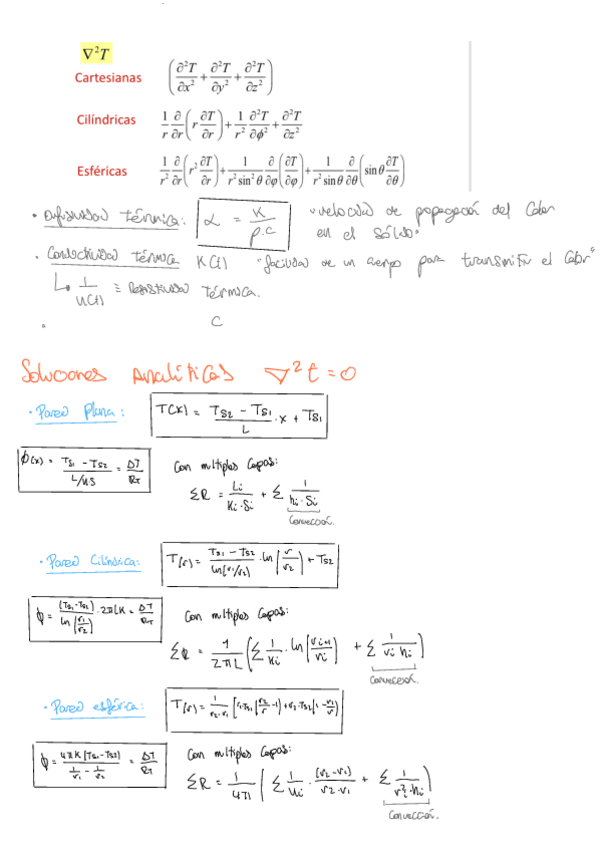 ∇²T
Cartesianas (∂²T/∂x² + ∂²T/∂y² + ∂²T/∂z²)
Cilíndricas 1/r ∂/∂r (r ∂T/∂r) + 1/r² ∂²T/∂ϕ² + ∂²T/∂z²
Esféricas 1/r² ∂/∂r (r² ∂T/∂r) + 1/(r² sin² θ) ∂/∂φ (∂T/∂φ) + 1/(r² sin θ) ∂/∂θ (sin θ ∂T/∂θ)
• Difusividad térmica: α = K/(ρ.c) "velocidad de propagación del calor
en el sólido"
• Conductividad térmica K(t) "facilidad de un cuerpo para transmitir el calor"
↳ 1/K(t) ≡ Resistividad térmica.
• C
Soluciones Analíticas ∇²t = 0
• Pared plana: T(x) = (Ts2 - Ts1)/L · x + Ts1
ϕ(x) = (Ts1 - Ts2)/(L/KS) = ΔT/RT
Con multiples Capas:
ΣR = Li/(Ki·Si) + Σ 1/(hi·Si)
Convección.
• Pared Cilíndrica: T(r) = (Ts1 - Ts2)/ln(r1/r2) · ln (r/r2) + Ts2
ϕ = (Ts1-Ts2)/ln(r1/r2) · 2πLK = ΔT/RT
Con multiples Capas:
ΣR = 1/(2πL) (Σ 1/Ki · ln (ri+1/ri) + Σ 1/(ri hi))
Convección.
• Pared esférica: T(r) = 1/(r2-r1) [r1·Ts1 (r2/r -1) + r2·Ts2 (1 - r1/r)]
ϕ = 4πK(Ts1-Ts2)/(1/r1 - 1/r2) = ΔT/RT
Con multiples Capas:
ΣR = 1/4π (Σ 1/Ki · (r2-r1)/(r2·r1) + Σ 1/(ri²·hi))
Convección.